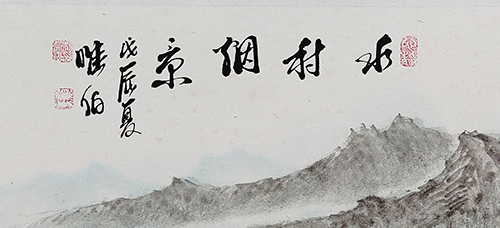 水村烟景
戊辰夏
唯伯